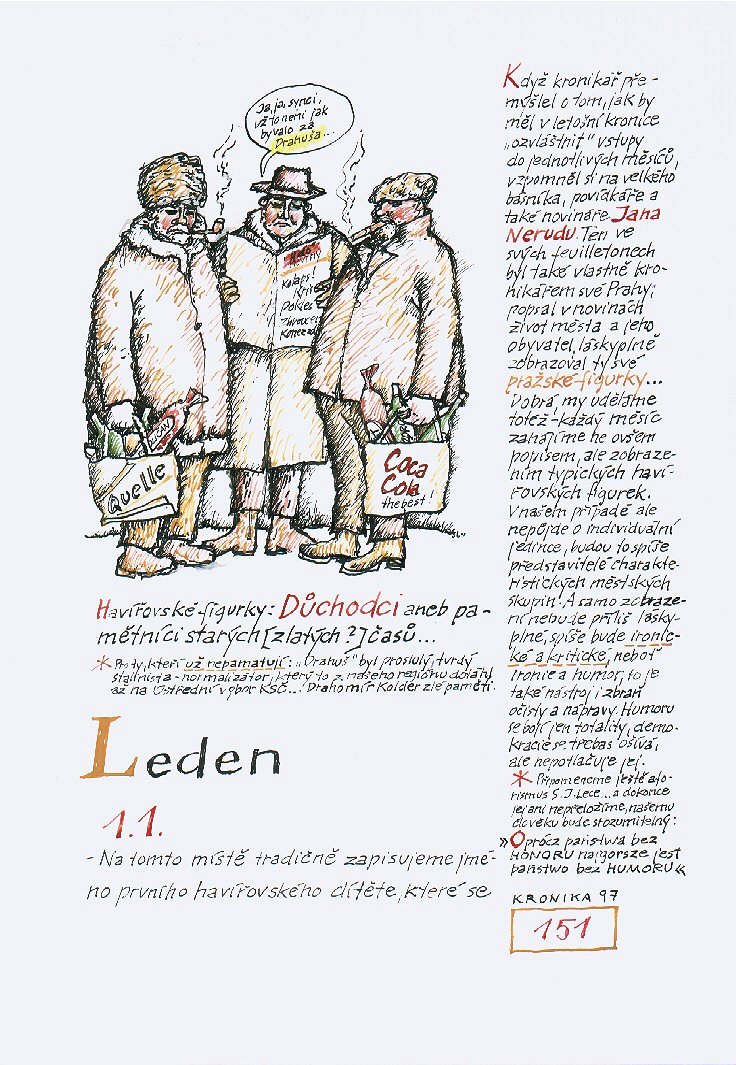 Ja, ja, synci,
už to není jak
bývalo za
Drahuša...
Kolaps!
Krize
Quelle
Coca
Cola
the best!
Havířovské figurky: Důchodci aneb pa-
mětníci starých [zlatých?] časů...
* Pro ty, kteří už nepamatují: „Drahuš" byl proslulý, tvrdý
stalinista - normalizátor, který to z našeho regionu dotáhl
až na Ústřední výbor KSČ...! Drahomír Kolder zlé paměti.
Leden
1.1.
- Na tomto místě tradičně zapisujeme jmé-
no prvního havířovského dítěte, které se
Když kronikář pře-
mýšlel o tom, jak by
měl v letošní kronice
„ozvláštnit" vstupy
do jednotlivých měsíců,
vzpomněl si na velkého
básníka, povídkáře a
také novináře Jana
Nerudu. Ten ve
svých feuilletonech
byl také vlastně kro-
nikářem své Prahy;
popsal v novinách
život města a jeho
obyvatel, láskyplně
zobrazoval ty své
pražské figurky...
Dobrá, my uděláme
totéž - každý měsíc
zahájíme ne ovšem
popisem, ale zobraze-
ním typických haví-
řovských figurek.
V našem případě ale
nepůjde o individuální
jedince, budou to spíše
představitelé charakte-
ristických městských
skupin! A samo zobraze-
ní nebude příliš lásky-
plné, spíše bude ironic-
ké a kritické, neboť
ironie a humor, to je
také nástroj i zbraň
očisty a nápravy. Humoru
se bojí jen totality, demo-
kracie se třebas ošívá,
ale nepotlačuje jej.
* Připomeneme ještě afo-
rismus S. J. Lece... a dokonce
jej ani nepřeložíme, našemu
člověku bude srozumitelný:
»Oprócz państwa bez
HONORU najgorsze jest
państwo bez HUMORU«
KRONIKA 97
151